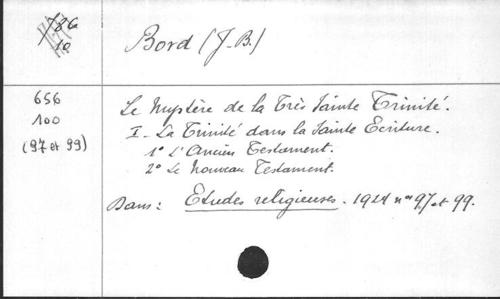 Bord (J-B.)
656
100
(97 et 99)
Le Mystère de la Très Sainte Trinité.
I - La Trinité dans la Sainte Ecriture.
1º L'Ancien Testament.
2º Le Nouveau Testament.
Dans : Etudes religieuses. 1924 nos 97 et 99.